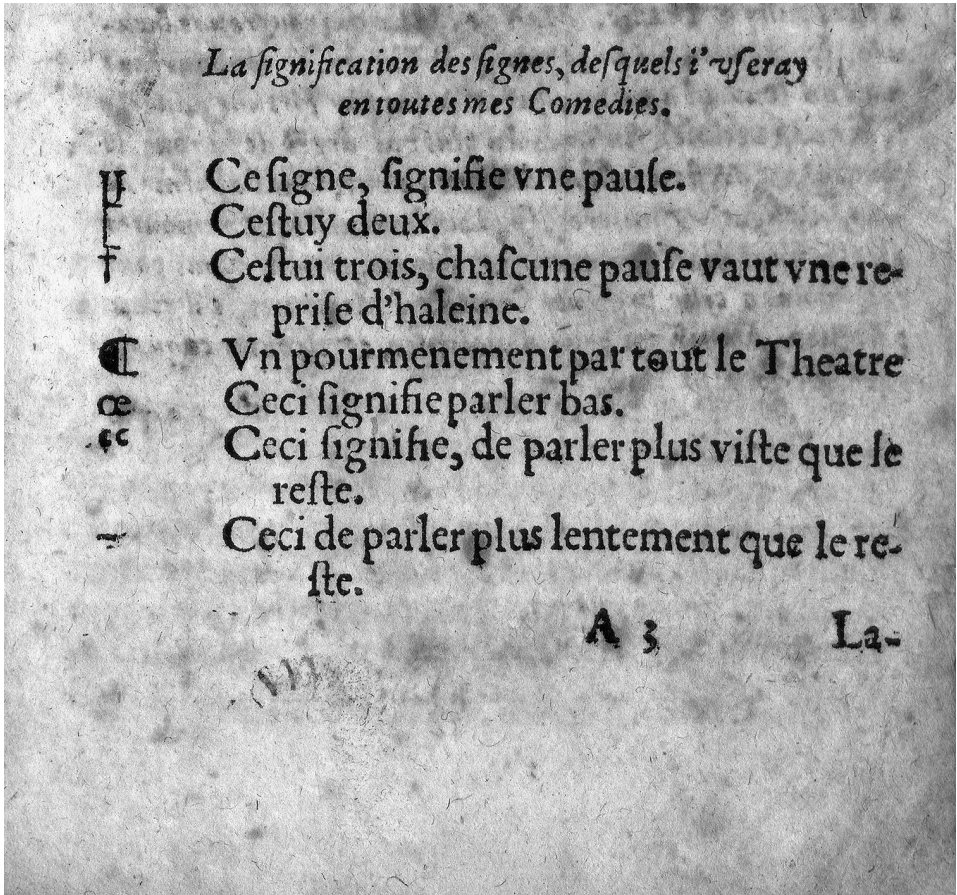 La ſignification des ſignes, deſquels i'vſeray
en toutes mes Comedies.
Ce ſigne, ſignifie vne pauſe.
[ Ceſtuy deux.
† Ceſtui trois, chaſcune pauſe vaut vne re-
priſe d'haleine.
¶ Vn pourmenement par tout le Theatre
œ Ceci ſignifie parler bas.
“ Ceci ſignifie, de parler plus viſte que le
reſte.
~ Ceci de parler plus lentement que le re-
ſte.
A 3 La-